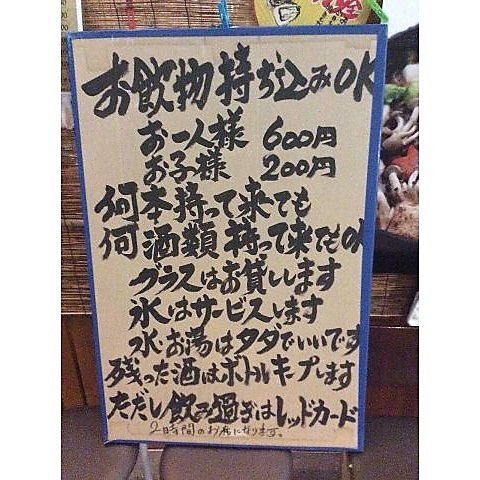 お飲物持ち込みOK
お一人様 600円
お子様 200円
何本持って来ても
何酒類持って来てもOK
グラスはお貸しします
氷はサービスします
水・お湯はタダでいいです
残った酒はボトルキープします
ただし飲み過ぎはレッドカード
2時間のお席になります。